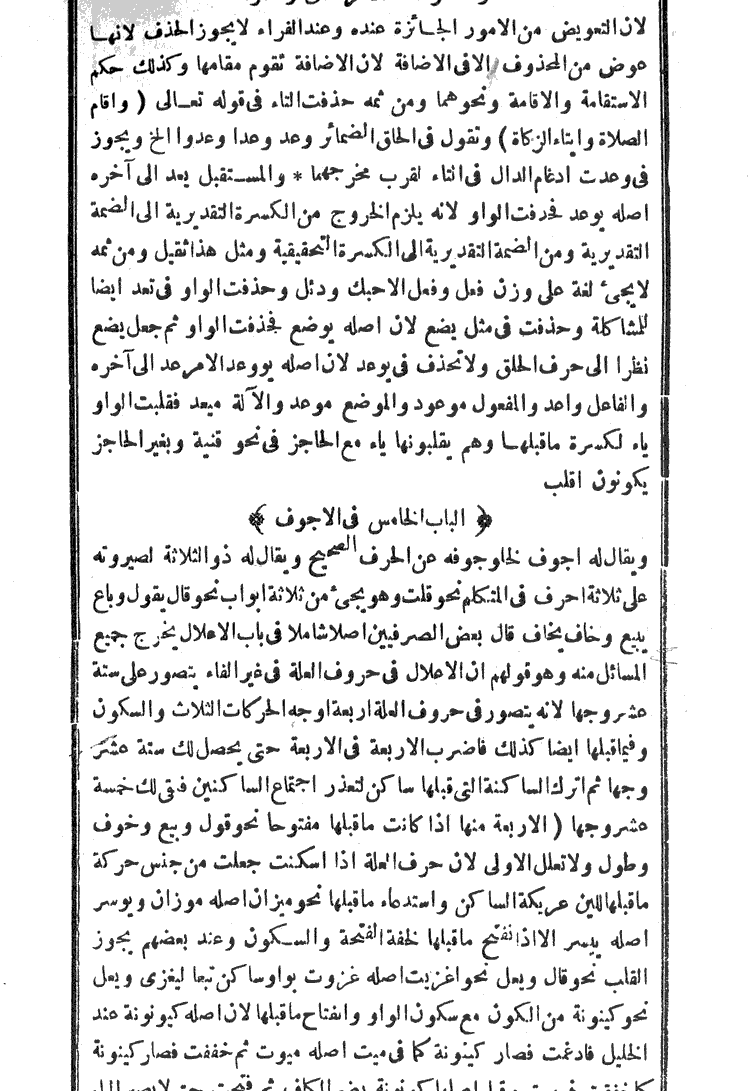 لان التعويض من الامور الجائزة عنده وعند الفراء لايجوز الحذف لانها
عوض من المحذوف الا فى الاضافة لان الاضافة تقوم مقامها وكذلك حكم
الاستقامة والاقامة ونحوهما ومن ثمه حذفت التاء فى قوله تعالى ( واقام
الصلاة وايتاء الزكاة ) وتقول فى الحاق الضمائر وعد وعدا وعدوا الخ ويجوز
فى وعدت ادغام الدال فى التاء لقرب مخرجهما * والمستقبل يعد الى آخره
اصله يوعد فحذفت الواو لانه يلزم الخروج من الكسرة التقديرية الى الضمة
التقديرية ومن الضمة التقديرية الى الكسرة التحقيقية ومثل هذا ثقيل ومن ثمه
لايجئ لغة على وزن فعل وفعل الاحبك ودئل وحذفت الواو فى تعد ايضا
للمشاكلة وحذفت فى مثل يضع لان اصله يوضع فحذفت الواو ثم جعل يضع
نظرا الى حرف الحلق ولاتحذف فى يوعد لان اصله يووعد الامر عد الى آخره
والفاعل واعد والمفعول موعود والموضع موعد والآلة ميعد فقلبت الواو
ياء لكسرة ماقبلها وهم يقلبونها ياء مع الحاجز فى نحو قنية وبغير الحاجز
يكونون اقلب
﴿ الباب الخامس فى الاجوف ﴾
ويقال له اجوف لخلو جوفه عن الحرف الصحيح ويقال له ذو الثلاثة لصيروته
على ثلاثة احرف فى المتكلم نحو قلت وهو يجئ من ثلاثة ابواب نحو قال يقول وباع
يبيع وخاف يخاف قال بعض الصرفيين اصلا شاملا فى باب الاعلال يخرج جميع
المسائل منه وهو قولهم ان الاعلال فى حروف العلة فى غير الفاء يتصور على ستة
عشر وجها لانه يتصور فى حروف العلة اربعة اوجه الحركات الثلاث والسكون
وفيما قبلها ايضا كذلك فاضرب الاربعة فى الاربعة حتى يحصل لك ستة عشر
وجها ثم اترك الساكنة التى قبلها ساكن لتعذر اجتماع الساكنين فبقى لك خمسة
عشر وجها ( الاربعة منها اذا كانت ماقبلها مفتوحا نحو قول وبيع وخوف
وطول ولاتعلل الاولى لان حرف العلة اذا اسكنت جعلت من جنس حركة
ماقبلها للين عريكة الساكن واستدعاء ماقبلها نحو ميزان اصله موزان ويوسر
اصله ييسر الا اذا انفتح ماقبلها لخفة الفتحة والسكون وعند بعضهم يجوز
القلب نحو قال ويعل نحو اغزيت اصله غزوت بواو ساكن تبعا ليغزى ويعل
نحو كينونة من الكون مع سكون الواو وانفتاح ماقبلها لان اصله كيونونة عند
الخليل فادغمت فصار كينونة كما فى ميت اصله ميوت ثم خففت فصار كينونة